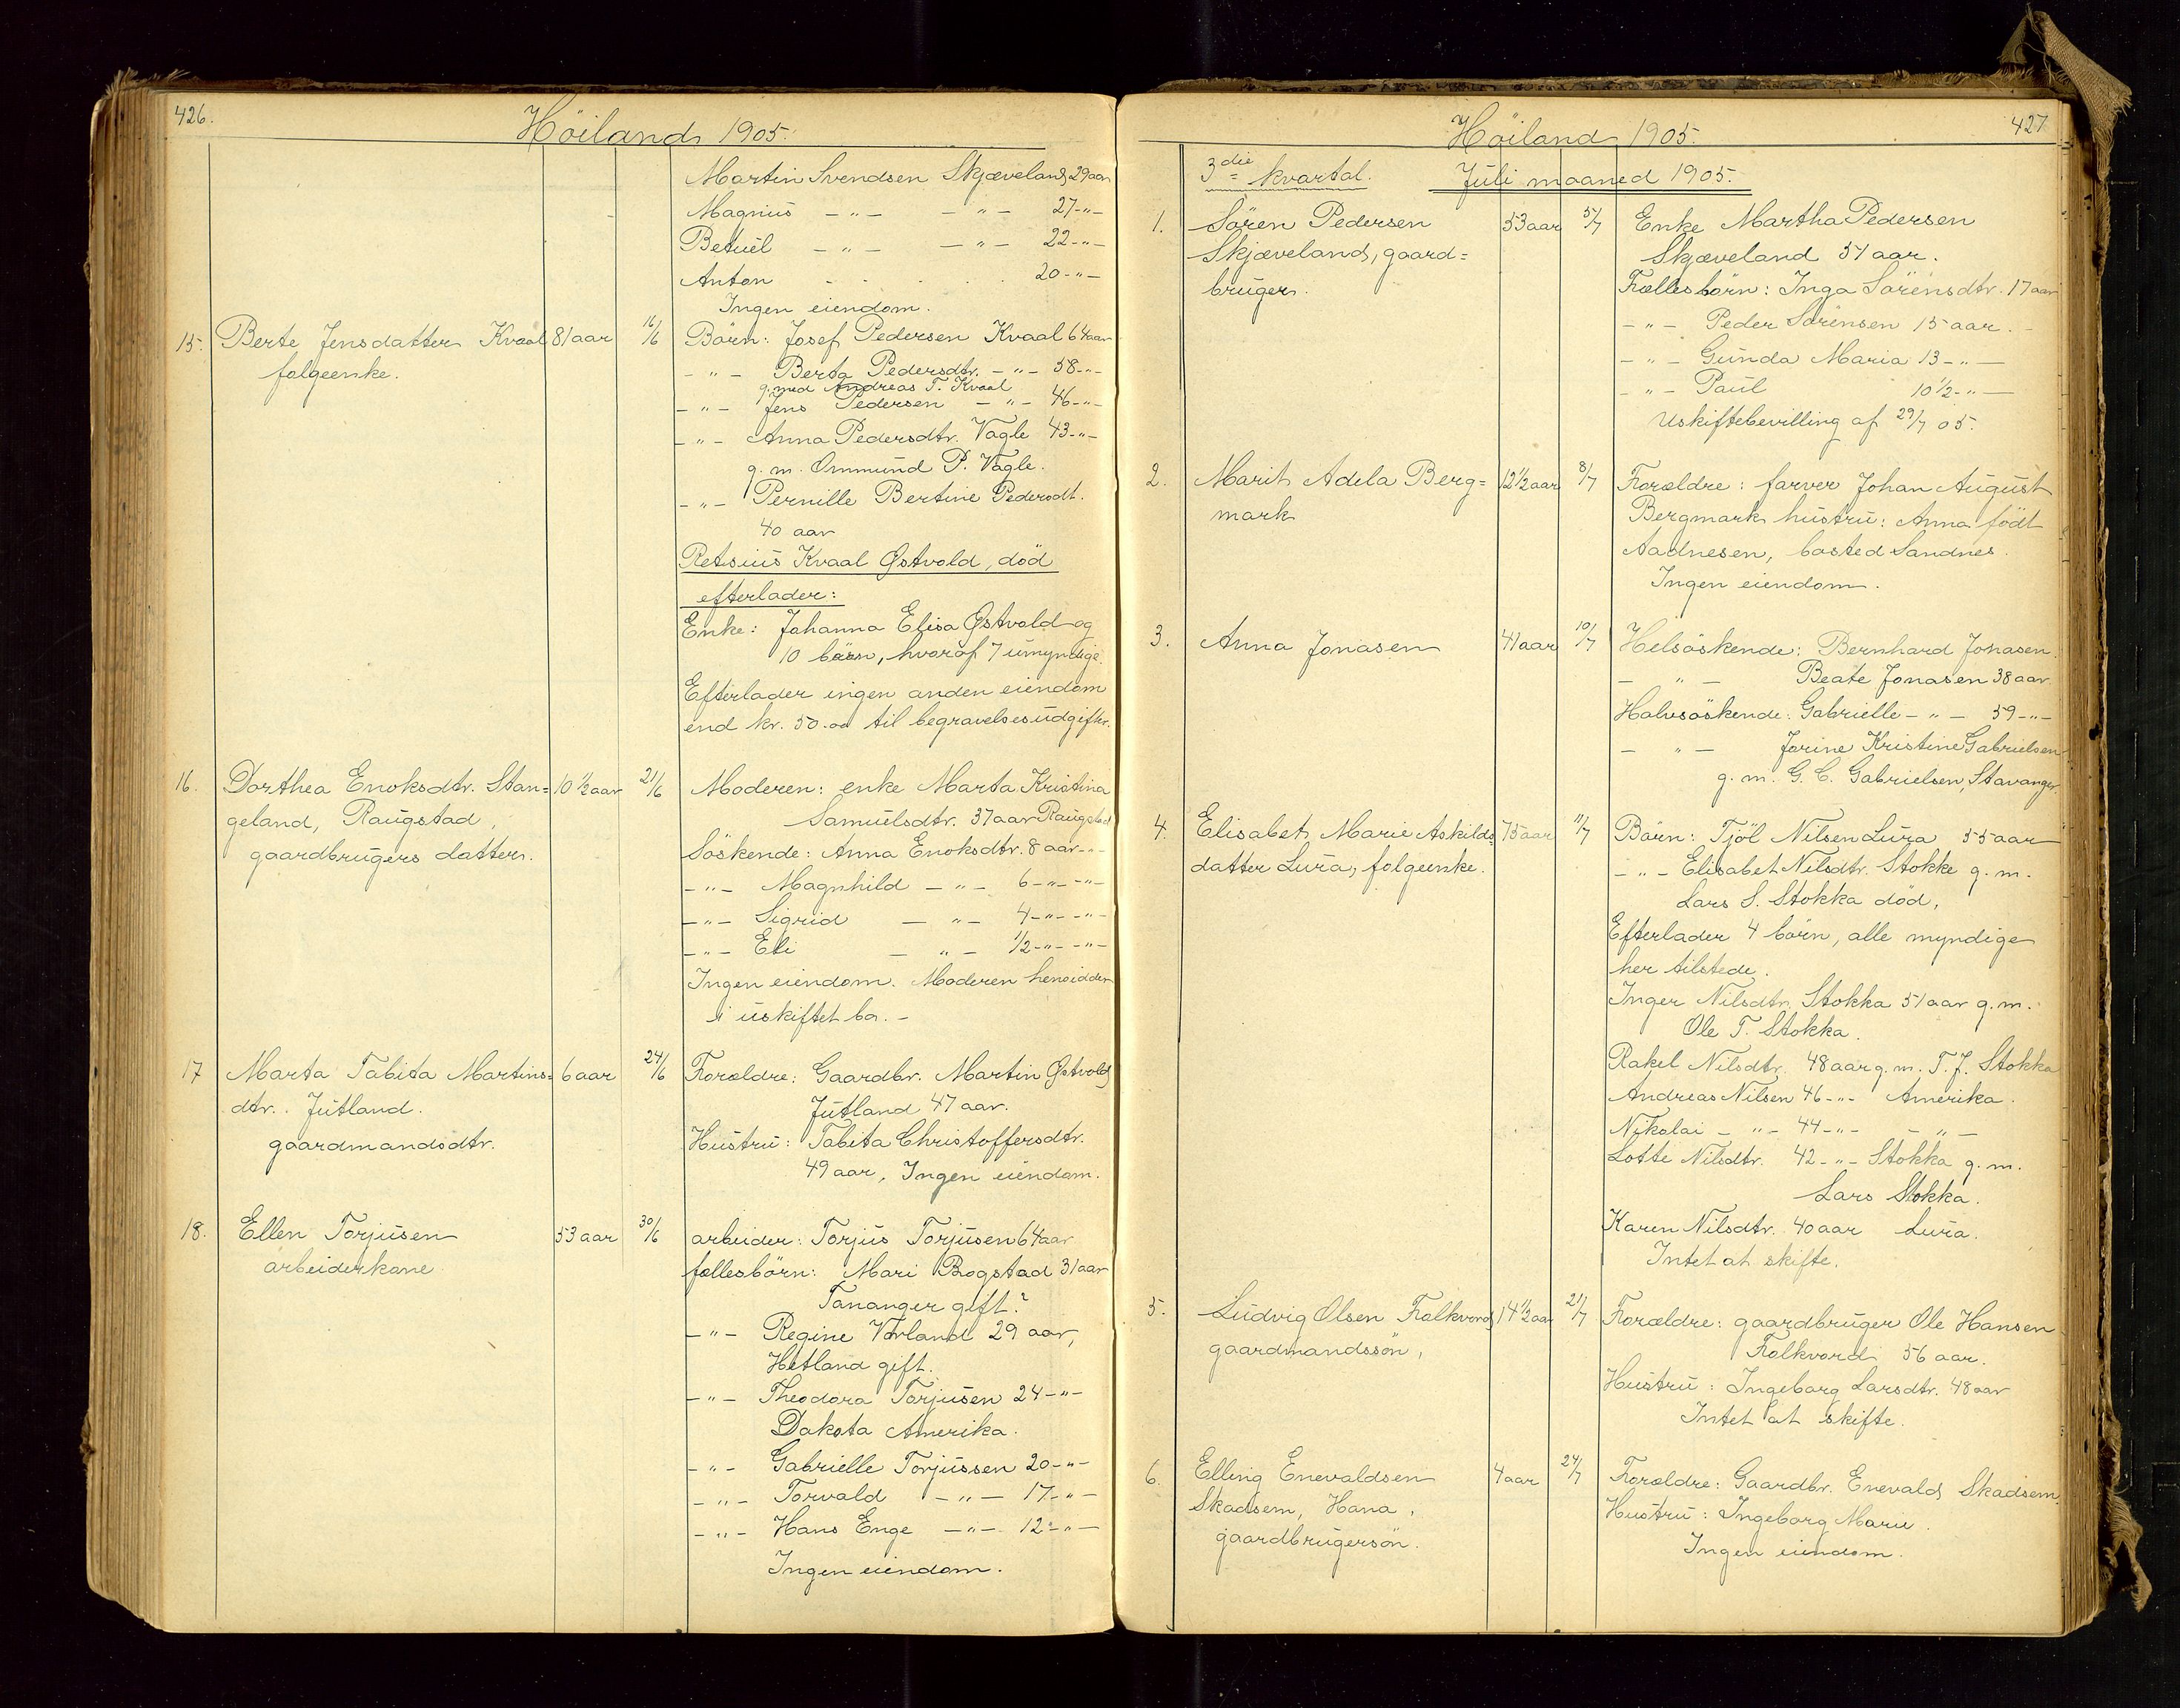 426.
Höiland 1905
Martin Svendsen Skjæveland 29 aar
Magnus – " – – " – 27 – " –
Betuel – " – – " – 22 – " –
Anton . . . . . 20 – " –
Ingen eiendom.
15. Berte Jensdatter Kvaal 81 aar 16/6 Börn: Josef Pedersen Kvaal 64 aar
folgeenke. – " – Berta Pedersdtr. – " – 58 – " –
g. med Andreas T. Kvaal
– " – Jens Pedersen – " – 46 – " –
– " – Anna Pedersdtr. Vagle 43 – " –
g. m. Ommund P. Vagle.
– " – Pernille Bertine Pedersdt.
40 aar
Retsius Kvaal Østvold, död
efterlader:
Enke: Johanna Elisa Østvold og
10 börn, hvoraf 7 umyndige.
Efterlader ingen anden eiendom
end kr. 50.00 til begravelsesudgifter.
16. Dorthea Enoksdtr. Stan= 10 1/2 aar 21/6 Moderen: enke Marta Kristina
geland, Raugstad, Samuelsdtr. 37 aar Raugstad
gaardbrugers datter. Söskende: Anna Enoksdtr. 8 aar – " –
– " – Magnhild – " – 6 – " – – " –
– " – Sigrid – " – 4 – " – – " –
– " – Eli – " – 1/2 – " – – " –
Ingen eiendom. Moderen hensidder
i uskiftet bo. –
17 Marta Tabita Martins= 6 aar 24/6 Forældre: Gaardbr. Martin Østvold
dtr. Jutland. Jutland 47 aar.
gaardmandsdtr. Hustru: Tabita Christoffersdtr.
49 aar, Ingen eiendom.
18. Ellen Torjusen 53 aar 30/6 arbeider: Torjus Torjusen 64 aar
arbeiderkone fællesbörn: Mari Rogstad 31 aar
Tananger gift?
– " – Regine Vorland 29 aar,
Hetland gift.
– " – Theodora Torjusen 24 – " –
Dakota Amerika.
– " – Gabrielle Torjussen 20 – " –
– " – Torvald – " – 17 – " –
– " – Hans Enge – " – 12 – " –
Ingen eiendom.
427
Höiland 1905.
3die kvartal. Juli maaned 1905.
1. Sören Pedersen 53 aar 5/7 Enke Martha Pedersen
Skjæveland, gaard= Skjæveland 51 aar.
bruger. Fællesbörn: Inga Sörensdtr. 17 aar
– " – Peder Sörensen 15 aar.
– " – Gunda Maria 13 – " –
– " – Paul 10 1/2 – " –
Uskiftebevilling af 29/7 05.
2. Marit Adela Berg= 12 1/2 aar 8/7 Forældre: farver Johan August
mark Bergmark hustru: Anna födt
Aadnesen, bosted Sandnes.
Ingen eiendom.
3. Anna Jonasen 41 aar 10/7 Helsöskende: Bernhard Jonasen.
– " – Beate Jonasen 38 aar
Halvsöskende: Gabrielle – " – 59 – " –
– " – Jorine Kristine Gabrielsen
g. m. G. C. Gabrielsen, Stavanger.
4. Elisabet Marie Askilds= 75 aar 11/7 Börn: Tjöl Nilsen Lura 55 aar
datter Lura, folgeenke. – " – Elisabet Nilsdtr. Stokke g. m.
Lars S. Stokka död,
Efterlader 4 börn, alle myndige
her tilstede.
Inger Nilsdtr. Stokka 51 aar g. m.
Ole T. Stokka.
Rakel Nilsdtr. 48 aar g. m. T. J. Stokka
Andreas Nilsen 46 – " – Amerika.
Nikolai – " – 44 – " – – " –
Lotte Nilsdtr. 42 – " – Stokka g. m.
Lars Stokka.
Karen Nilsdtr. 40 aar Lura.
Intet at skifte.
5. Ludvig Olsen Folkvord 14 1/2 aar 21/7 Forældre: gaardbruger Ole Hansen
gaardmandssön, Folkvord 56 aar.
Hustru: Ingeborg Larsdtr. 48 aar
Intet at skifte.
6. Elling Enevaldsen 4 aar 24/7 Forældre: Gaardbr. Enevald Skadsem.
Skadsem, Hana, Hustru: Ingeborg Marie.
gaardbrugersön. Ingen eiendom.